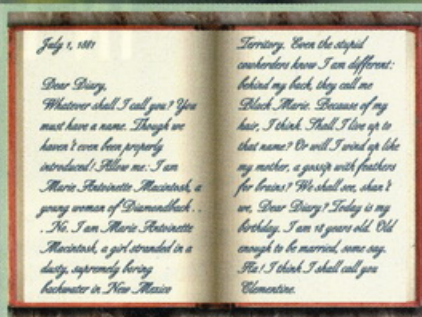 July 1, 1881
Dear Diary,
Whatever shall I call you? You
must have a name. Though we
haven't even been properly
introduced! Allow me: I am
Marie Antoinette Macintosh, a
young woman of Diamondback . .
. No. I am Marie Antoinette
Macintosh, a girl stranded in a
dusty, supremely boring
backwater in New Mexico
Territory. Even the stupid
cowherders know I am different:
behind my back, they call me
Black Marie. Because of my
hair, I think. Shall I live up to
that name? Or will I wind up like
my mother, a gossip with feathers
for brains? We shall see, shan't
we, Dear Diary? Today is my
birthday. I am 18 years old. Old
enough to be married, some say.
Ha! I think I shall call you
Clementine.